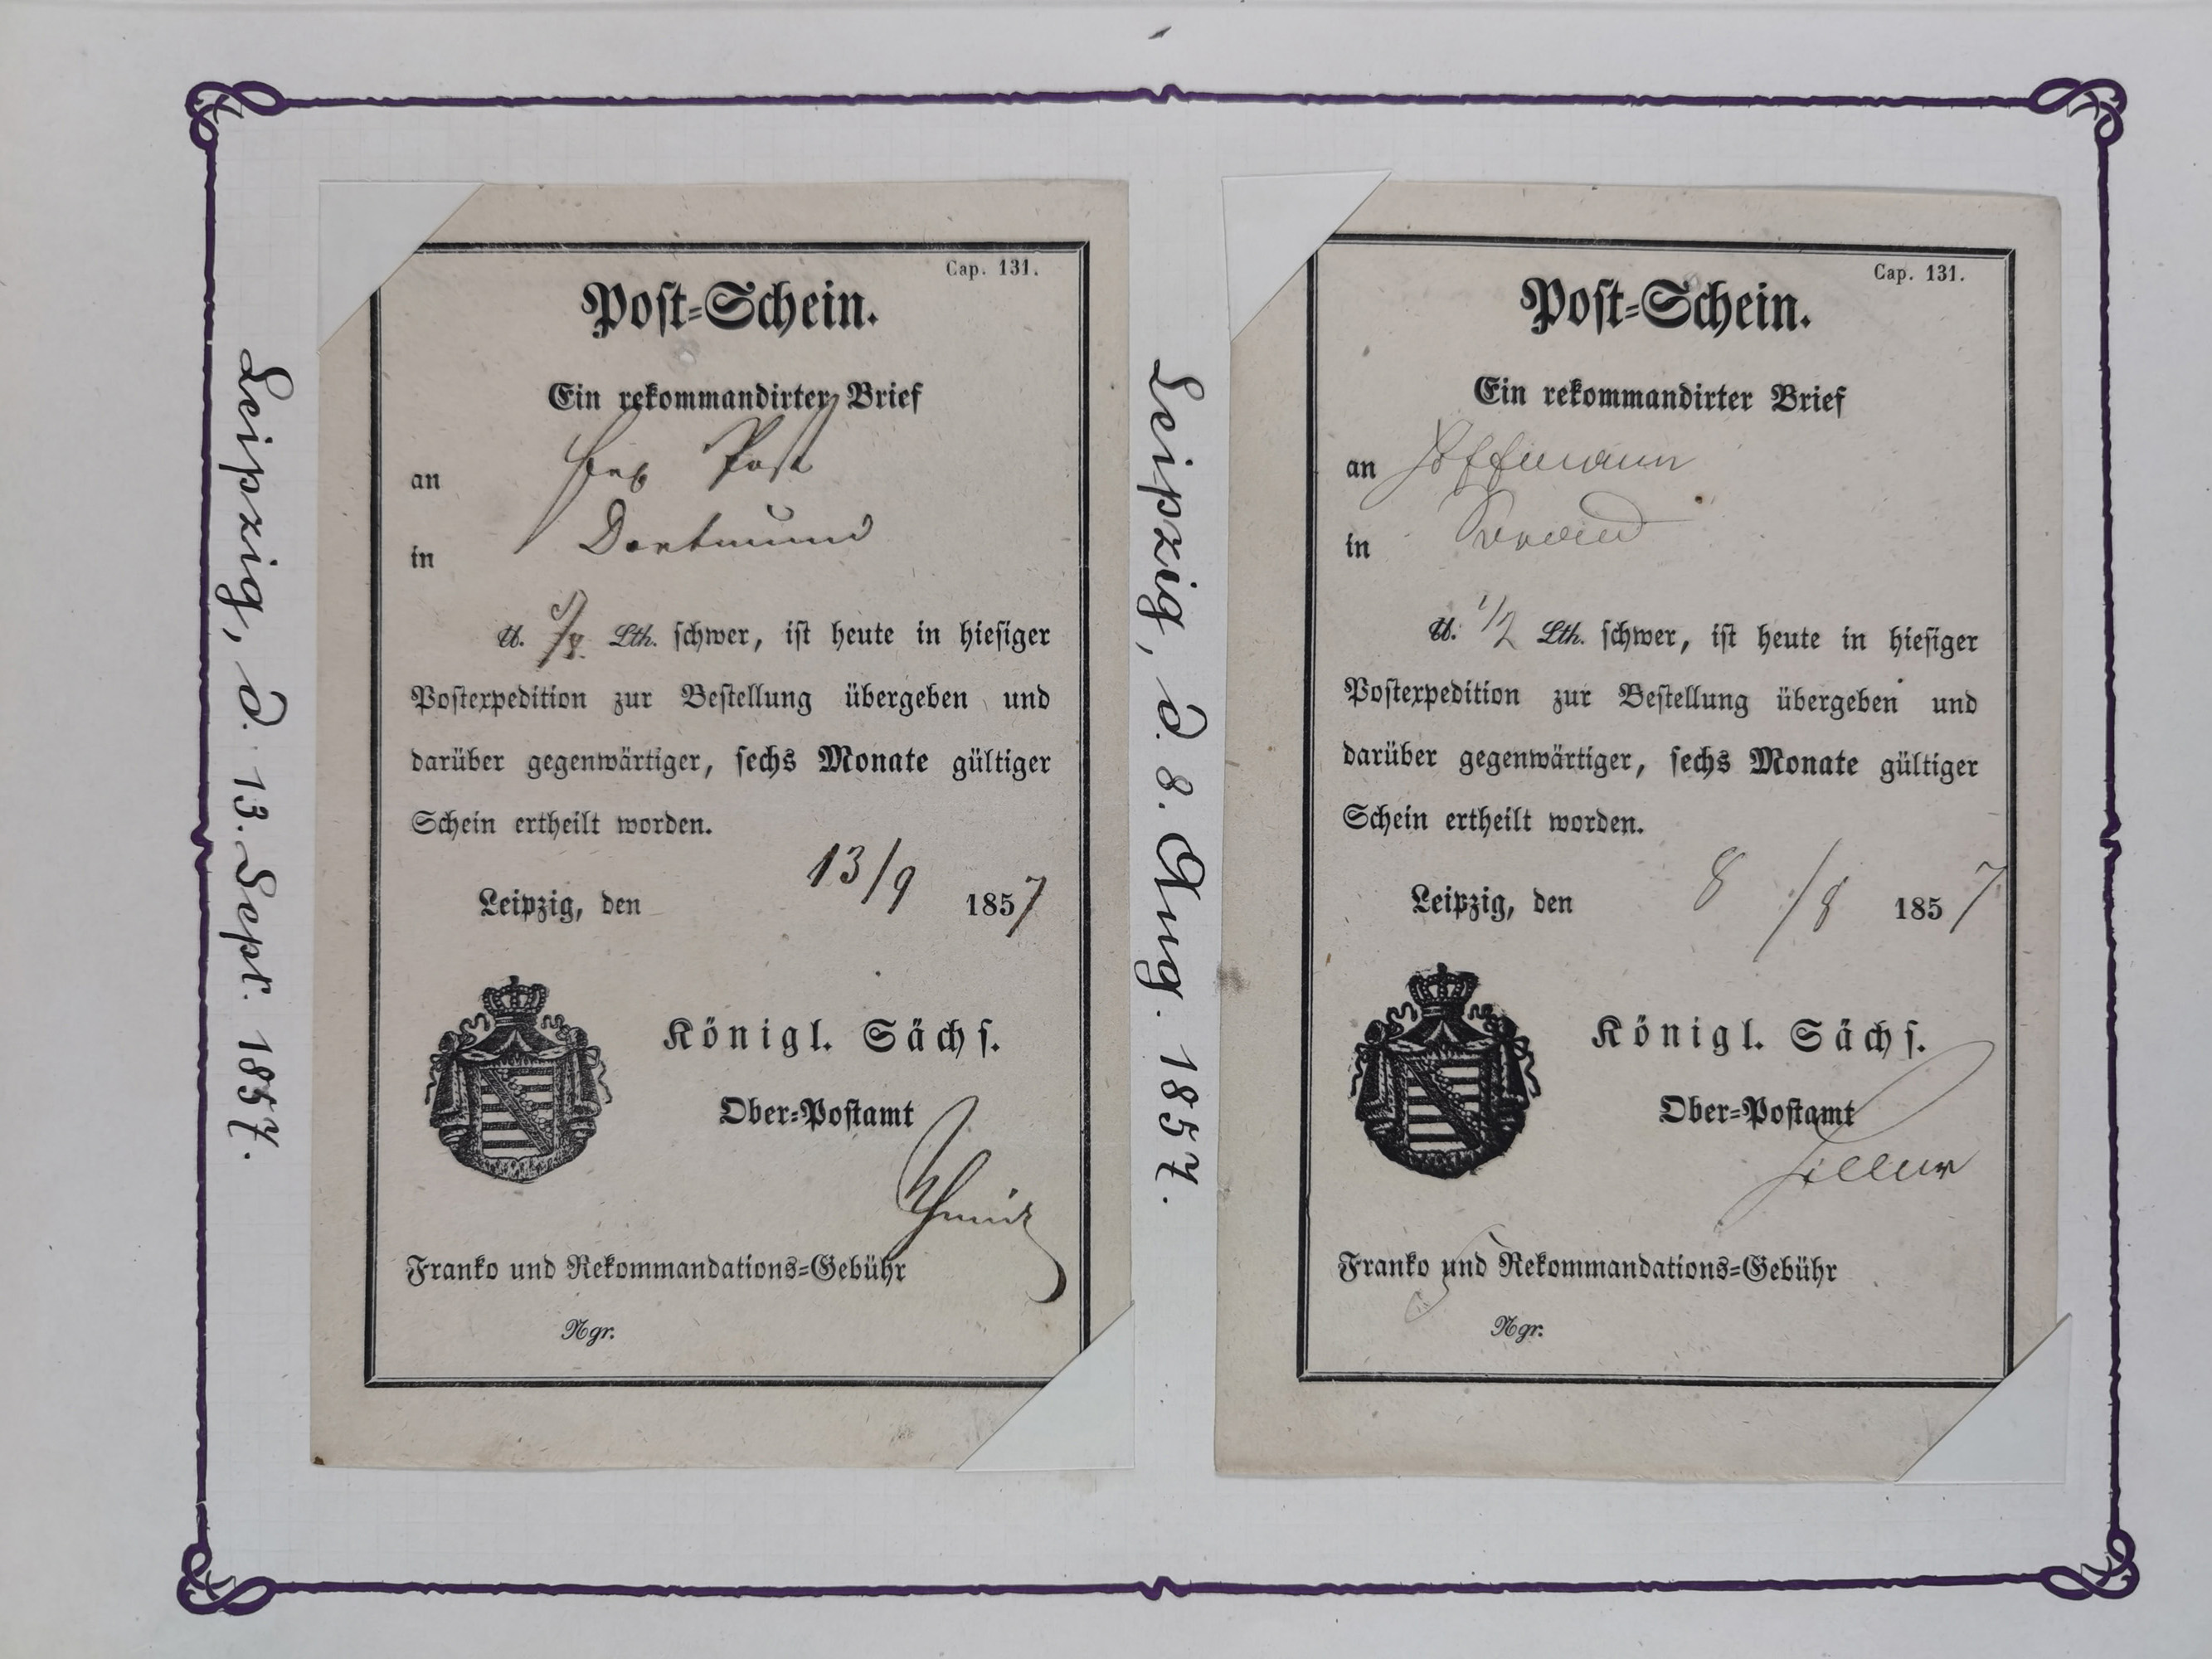 Leipzig, d. 13. Sept. 1857.
Cap. 131.
Post-Schein.
Ein rekommandirter Brief
an Post
in Dortmund
℔. Lth. schwer, ist heute in hiesiger
Postexpedition zur Bestellung übergeben und
darüber gegenwärtiger, sechs Monate gültiger
Schein ertheilt worden.
Leipzig, den 13/9 1857
Königl. Sächs.
Ober-Postamt
Franko und Rekommandations-Gebühr
Ngr.
Leipzig, d. 8. Aug. 1857.
Cap. 131.
Post-Schein.
Ein rekommandirter Brief
an Hoffmann
in
℔. 1/2 Lth. schwer, ist heute in hiesiger
Postexpedition zur Bestellung übergeben und
darüber gegenwärtiger, sechs Monate gültiger
Schein ertheilt worden.
Leipzig, den 8/8 1857
Königl. Sächs.
Ober-Postamt
Franko und Rekommandations-Gebühr
Ngr.